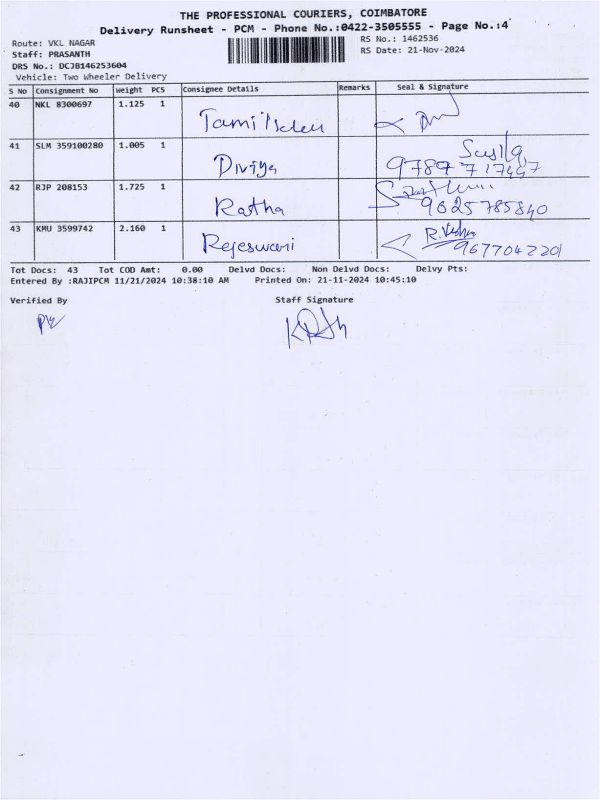 THE PROFESSIONAL COURIERS, COIMBATORE
Delivery Runsheet - PCM - Phone No.:0422-3505555 - Page No.:4
Route: VKL NAGAR RS No.: 1462536
Staff: PRASANTH RS Date: 21-Nov-2024
DRS No.: DCJB146253604
Vehicle: Two Wheeler Delivery
S No Consignment No Weight PCS Consignee Details Remarks Seal & Signature
40 NKL 8300697 1.125 1
41 SLM 359100280 1.005 1 Diviya
42 RJP 208153 1.725 1 Ratha 9625785840
43 KMU 3599742 2.160 1 Rejeswari 9677042201
Tot Docs: 43 Tot COD Amt: 0.00 Delvd Docs: Non Delvd Docs: Delvy Pts:
Entered By :RAJIPCM 11/21/2024 10:38:10 AM Printed On: 21-11-2024 10:45:10
Verified By Staff Signature